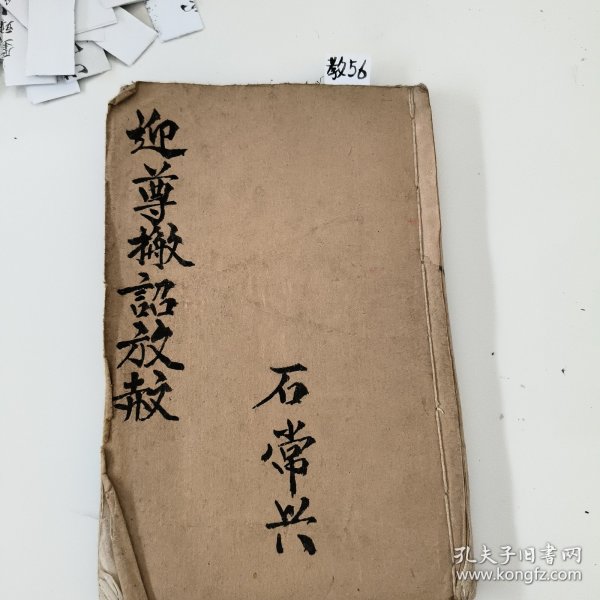 教56
迎尊撒詔放赦
石常兴
孔夫子旧书网
www.kongfz.com